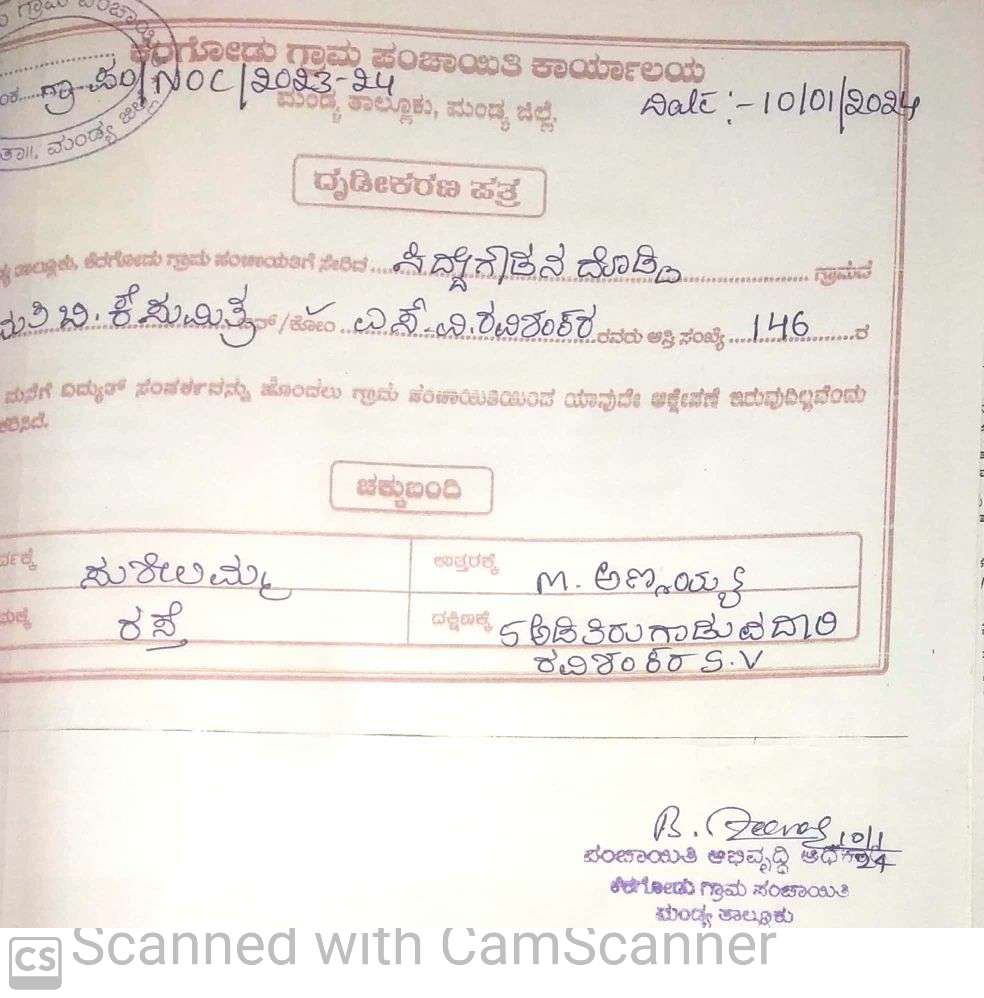 ಗ್ರಾಮ ಪಂಚಾಯಿತಿ
ಕೆರಗೋಡು ಗ್ರಾಮ ಪಂಚಾಯಿತಿ ಕಾರ್ಯಾಲಯ
ಗ್ರಾ ಪಂ/NOC/2023-24
ಮಂಡ್ಯ ತಾಲ್ಲೂಕು, ಮಂಡ್ಯ ಜಿಲ್ಲೆ.
Date :- 10/01/2024
ತಾ||, ಮಂಡ್ಯ ಜಿಲ್ಲೆ
ದೃಡೀಕರಣ ಪತ್ರ
ತಾಲ್ಲೂಕು, ಕೆರಗೋಡು ಗ್ರಾಮ ಪಂಚಾಯತಿಗೆ ಸೇರಿದ ... ಸಿದ್ದೇಗೌಡನ ದೊಡ್ಡಿ ... ಗ್ರಾಮದ
ಮತಿ ಬಿ. ಕೆ. ಸುಮಿತ್ರ /ಕೋಂ .. ಎಸ್. ವಿ. ರವಿಶಂಕರ ರವರು ಆಸ್ತಿ ಸಂಖ್ಯೆ .... 146 .... ರ
ಮನೆಗೆ ವಿದ್ಯುತ್ ಸಂಪರ್ಕವನ್ನು ಹೊಂದಲು ಗ್ರಾಮ ಪಂಚಾಯಿತಿಯಿಂದ ಯಾವುದೇ ಆಕ್ಷೇಪಣೆ ಇರುವುದಿಲ್ಲವೆಂದು
ಕರಿಸಿದೆ.
ಚಕ್ಕುಬಂದಿ
ರ್ವಕ್ಕೆ ಸುಶೀಲಮ್ಮ ಉತ್ತರಕ್ಕೆ M. ಅಣ್ಣಯ್ಯ
ಮಕ್ಕೆ ರಸ್ತೆ ದಕ್ಷಿಣಕ್ಕೆ 5 ಅಡಿ ತಿರುಗಾಡುವ ದಾರಿ
ರವಿಶಂಕರ S.V
10/1
24
ಪಂಚಾಯಿತಿ ಅಭಿವೃದ್ಧಿ
ಕೆರಗೋಡು ಗ್ರಾಮ ಪಂಚಾಯಿತಿ
ಮಂಡ್ಯ ತಾಲ್ಲೂಕು
CS Scanned with CamScanner